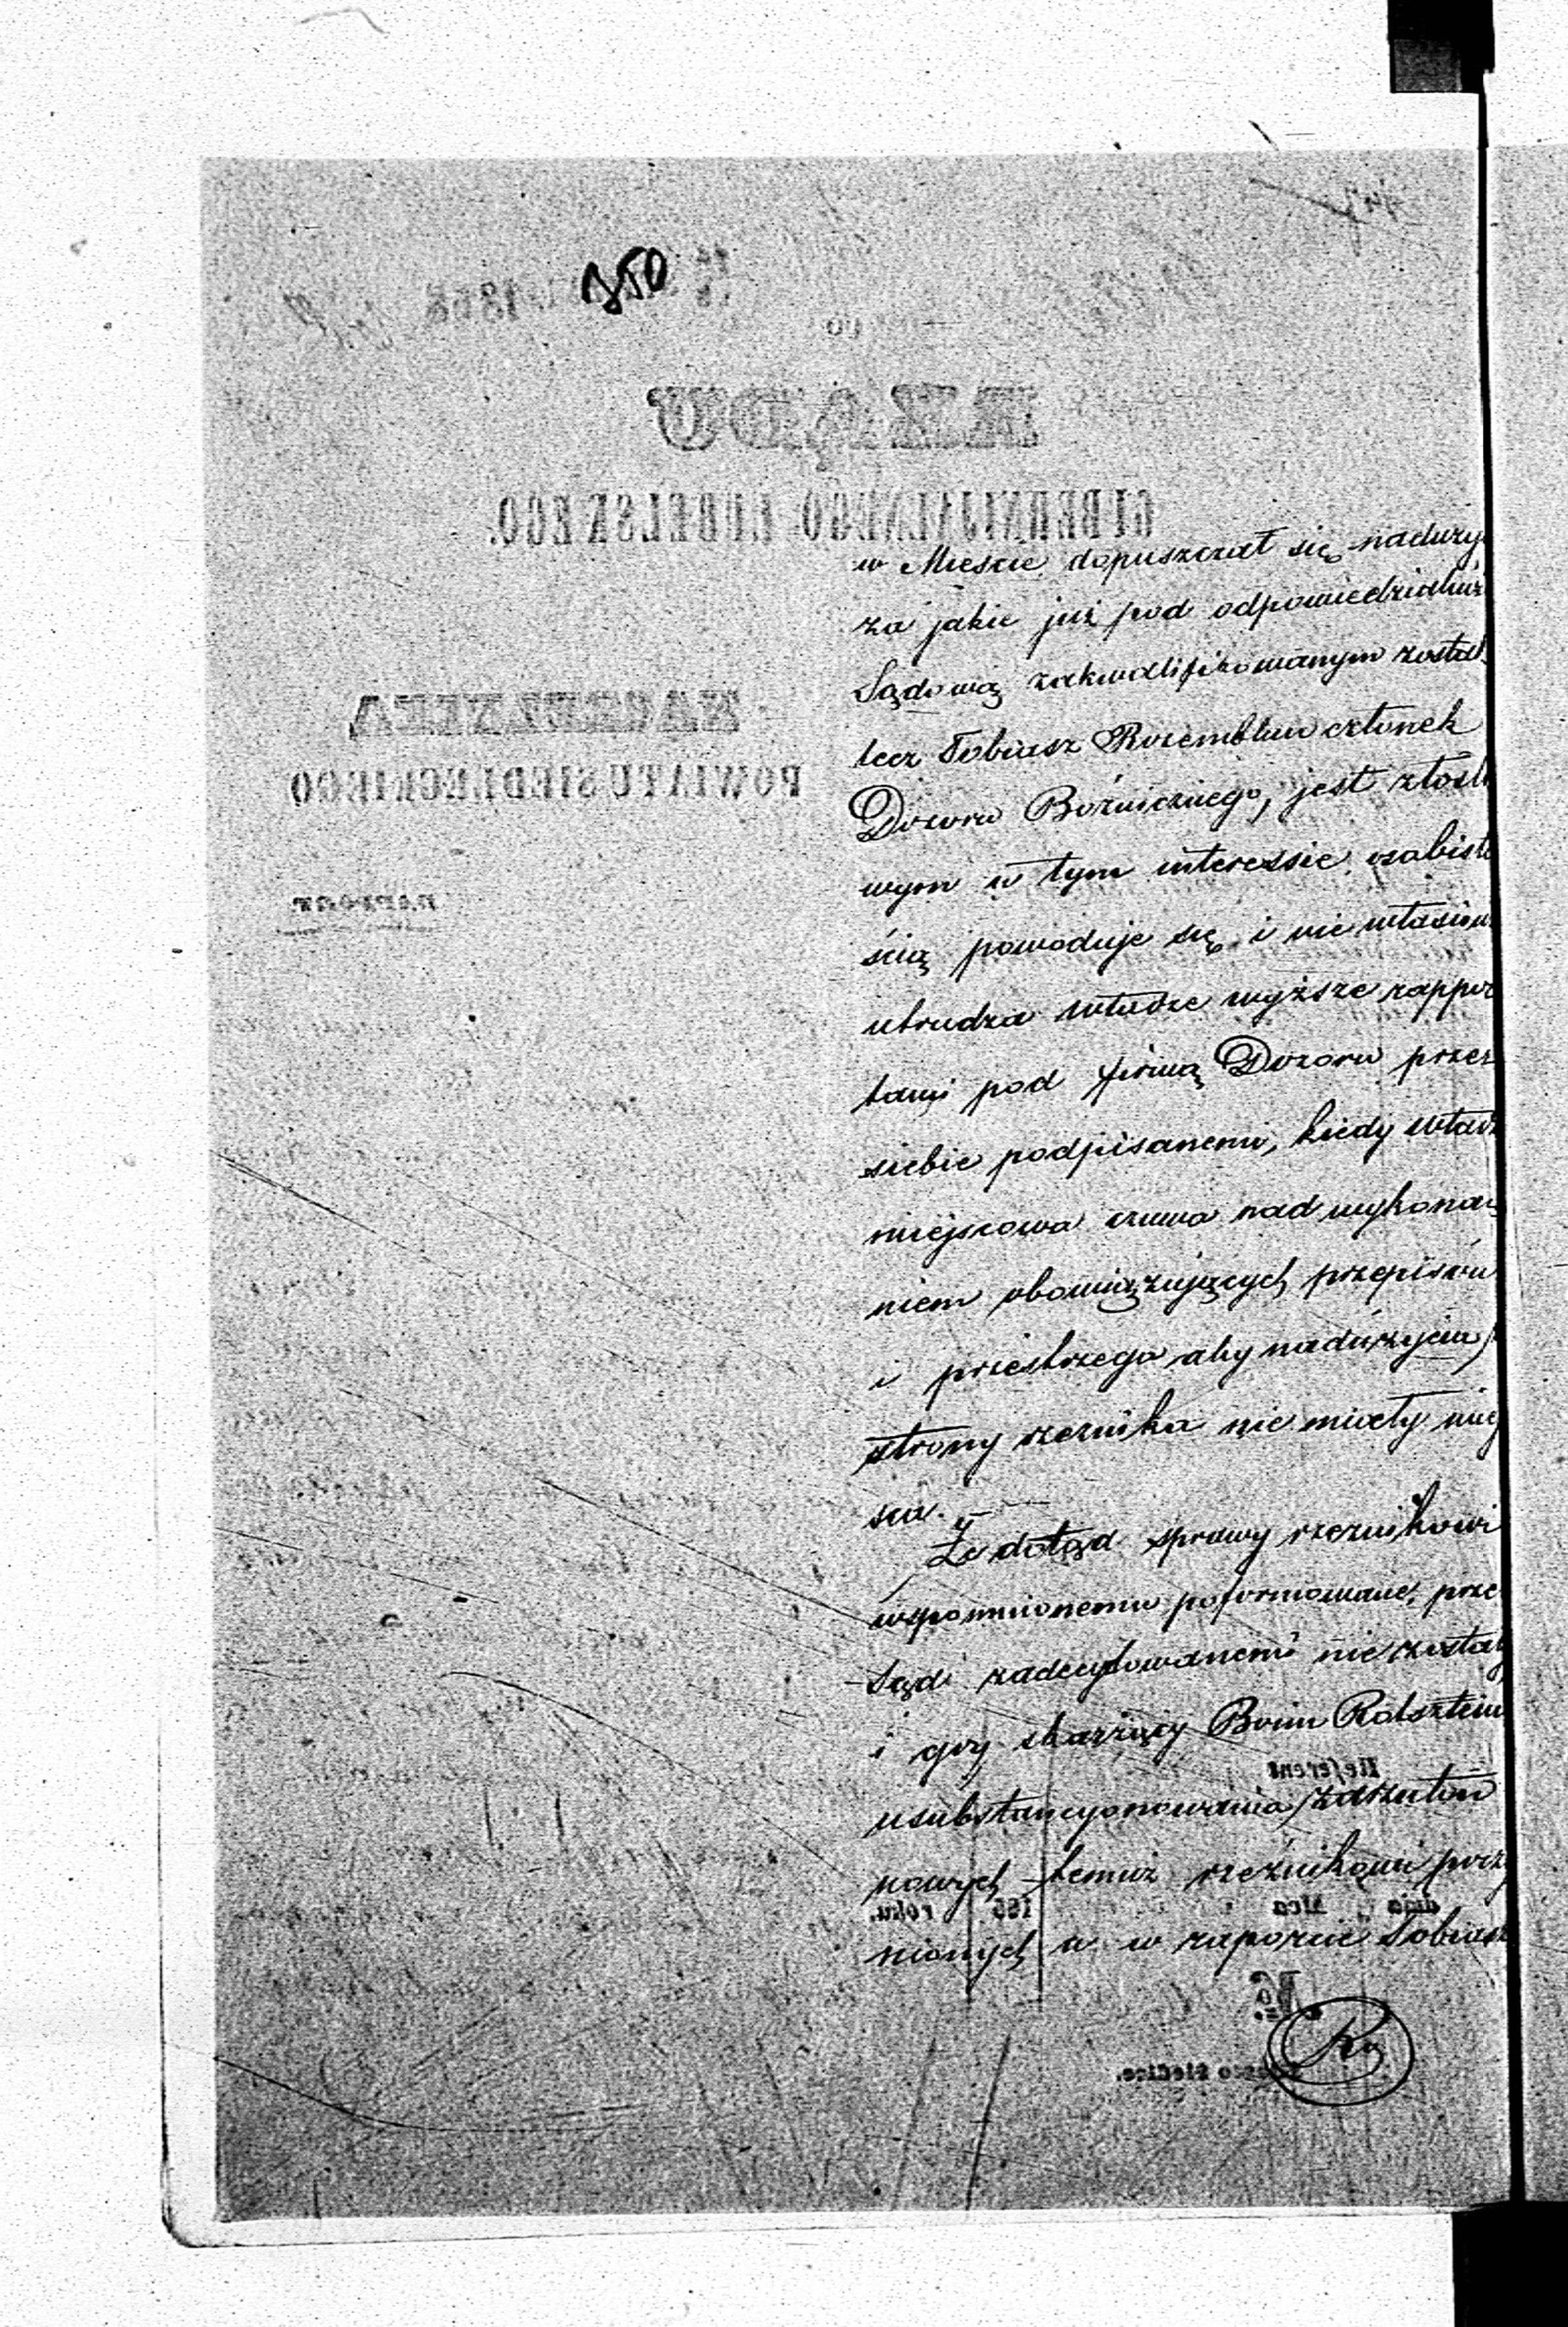 350
w Mieście dopuszczał się naduży
za jakie już pod odpowiedzialnoś
Sądową zakwalifikowanym został
lecz Tobiasz Rozemblum członek
Dozoru Bóżniczego, jest złośli
wym w tym interessie, osobisto
ścią powoduje się i nie właściw
utrudza władze wyższe rappor
tami pod firmą Dozoru przez
siebie podpisanemi, kiedy władz
miejscowa czuwa nad wykona
niem obowiązujących przepisów
i przestrzega aby nadużycia
strony rzeźnika nie miały miej
sca.
Że dotąd sprawy rzeźnikowi
wspomnionemu poformowane, prze
Sąd zadecydowanemi nie zostały
i gdy skarżący Boim Rotsztein
usubstancyonowania zarzutów
nowych temuż rzeźnikowi przy
nionych a w raporcie Tobiasz